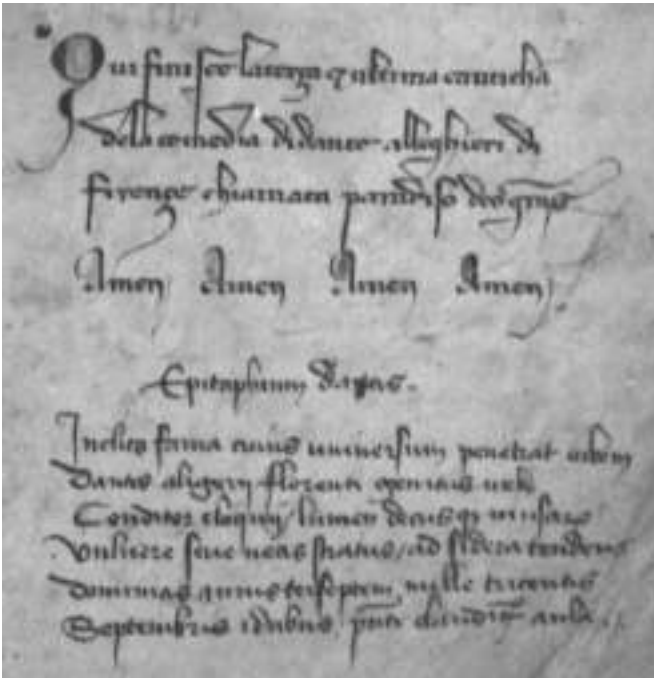 Qui finisce la terza et ultima canticha
della comedia di dante alleghieri di
firenze chiamata paradiso deo gratias
Amen Amen Amen Amen
Epitaphium dantis
Inclita fama cuius universum penetrat orbem
Dantes aligerii florenti genitus urbe
Conditor eloquii lumen decusque musarum
Vulnere seve necis stratus ad sidera tendens
dominicis annis ter septem mille trecentis
Septembris idibus aula